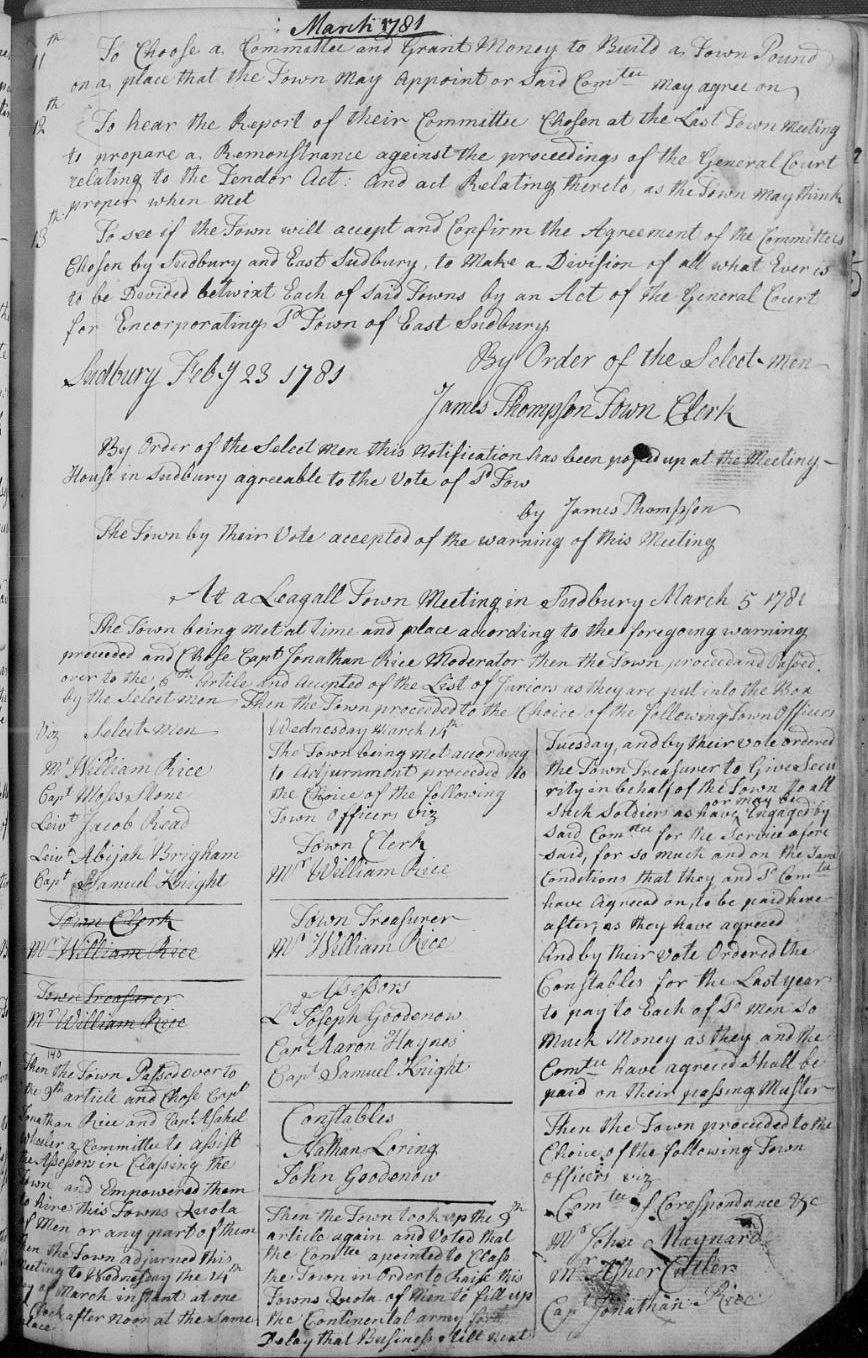 March 1781
11th To Choose a Committee and Grant Money to Build a Town Pound
on a place that the Town May Appoint or Said Comtee May agree on
12th To hear the Report of their Committee Chosen at the Last Town Meeting
to prepare a Remonstrance against the proceedings of the General Court
relating to the Tendor Act: And act Relating thereto, as the Town May think
proper when Met
13th To see if the Town will accept and Confirm the Agreement of the Committees
Chosen by Sudbury and East Sudbury, to Make a Division of all what Ever is
to be Divided betwixt Each of Said Towns by an Act of the General Court
for Encorporating Sd Town of East Sudbury
By Order of the Select-men
Sudbury Feby 23 1781
James Thompson Town Clerk
By Order of the Select Men this Notification has been posed up at the Meeting-
House in Sudbury agreeable to the Vote of Sd Tow
by James Thompson
The Town by their Vote accepted of the warning of this Meeting
At a Leagall Town Meeting in Sudbury March 5 1781
The Town being Met at Time and place according to the foregoing warning
proceded and Chose Capt Jonathan Rice Moderator then the Town proceed and Passed
over to the 6th Artile and accepted of the List of Juriors as they are put into the Box
by the Select men Then the Town proceeded to the Choice of the following Town Officers
Viz Select-men
Mr William Rice
Capt Moses Stone
Leiut Jacob Read
Leiut Abijah Brigham
Capt Samuel Knight
Town Clerk
Mr William Rice
Town Treasurer
Mr William Rice
140
Then the Town Passed over to
the 9th article and Chose Capt
Jonathan Rice and Capt Asahel
Wheeler a Committee to assist
the Assessors in Classing the
Town and Empowered them
to hire this Towns Quota
of Men or any part of them
Then the Town adjurned this
Meeting to Wednesday the 14th
Day of March instant at one
Clock after noon at the same
place
Wednesday March 14th
The Town being Met according
to Adjurnment proceeded to
the Choice of the following
Town Officers Viz
Town Clerk
Mr William Rice
Town Treasurer
Mr William Rice
Assessors
Lt Joseph Goodenow
Capt Aaron Haynes
Capt Samuel Knight
Constables
Nathan Loring
John Goodenow
Then the Town took up the 9th
article again and Voted that
the Comtee apointed to Class
the Town in Order to Raise this
Towns Quota of Men to fill up
the Continental army
Delay that Business till next
Tuesday, and by their vote ordered
the Town Treasurer to Give Secu
rity in behalf of the Town to all
such Soldiers as have or may be Engaged by
said Comtee for the Service afore
said, for so much and on the Same
Conditions that they and Sd Comtee
have Agreed on, to be paid here
after, as they have agreed
And by their Vote Ordered the
Constables for the Last year
to pay to Each of Sd Men So
Much Money as they and the
Comtee have agreed shall be
paid on their passing Muster
Then the Town proceded to the
Choice of the following Town
officers viz
Comtee of Corespondance &c
Mr John Maynard
Mr Asher Cutler
Capt Jonathan Rice